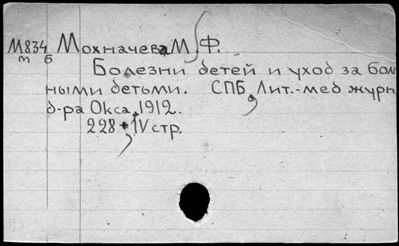 М834 Мохначева, М.Ф.
м б
Болезни детей и уход за боль
ными детьми. СПБ, Лит.-мед журн
д-ра Окса, 1912.
228, IV стр.